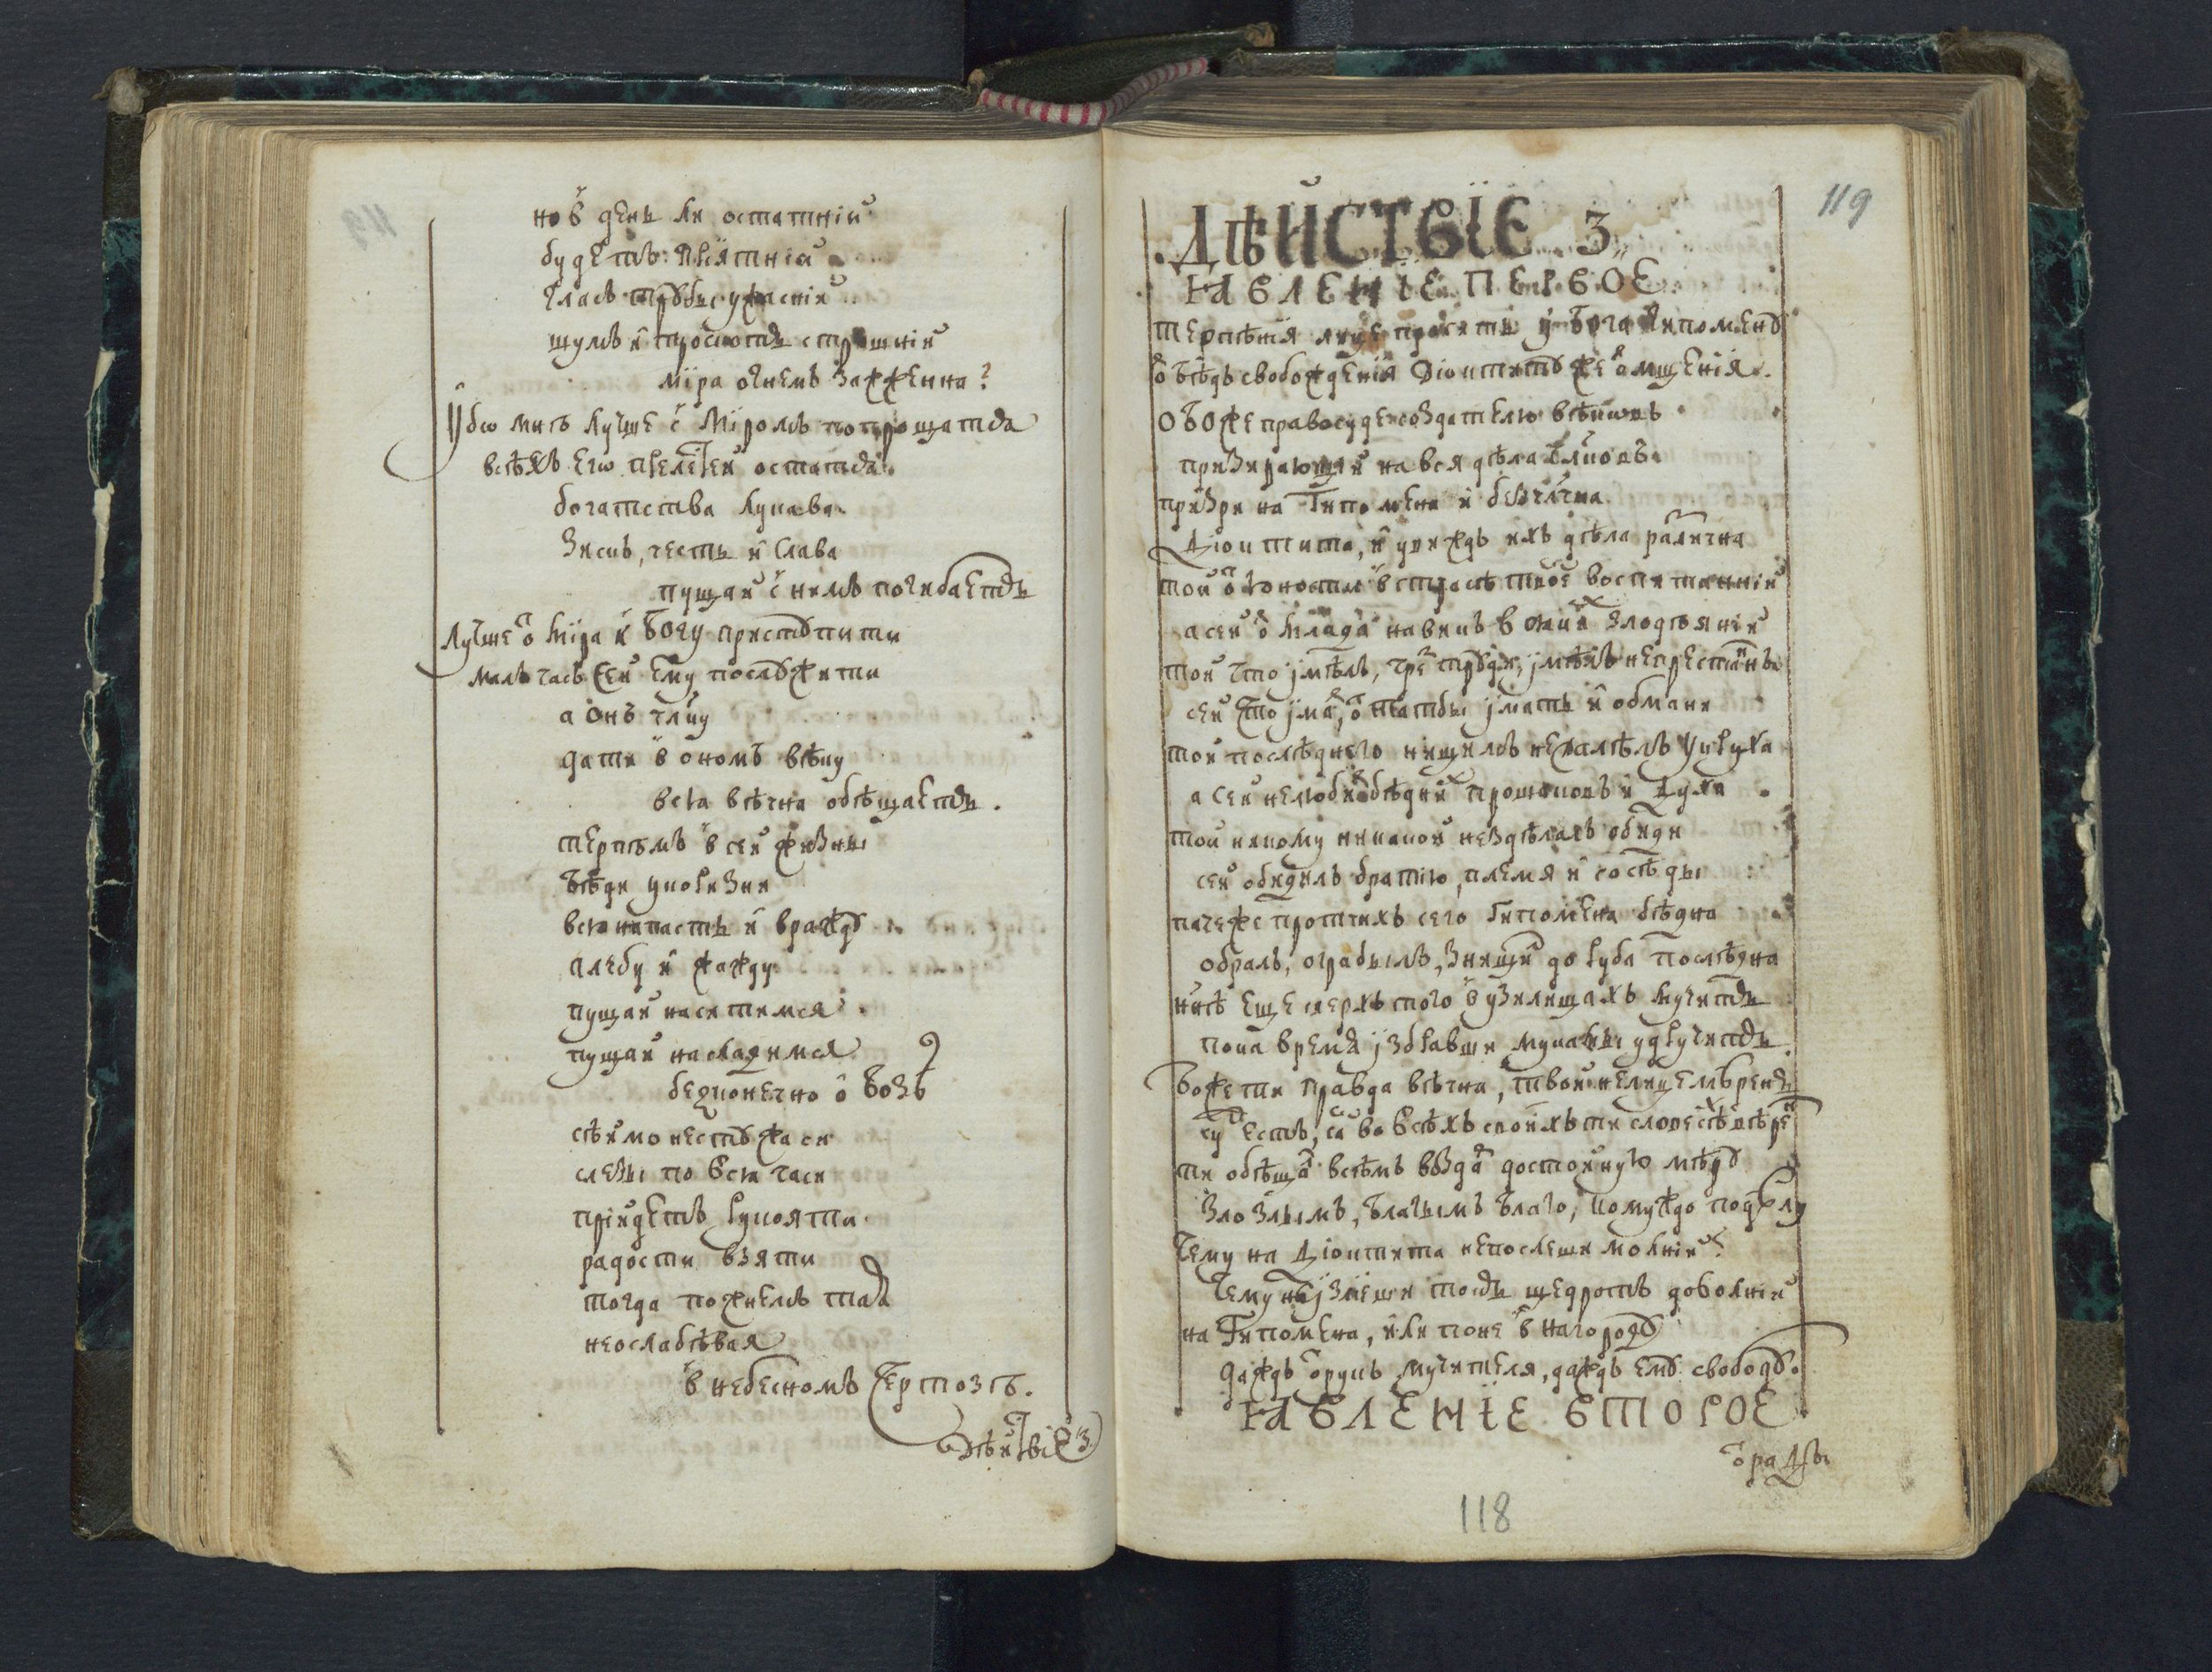 но в̾ день ли остатній
будетъ приятній
гласъ трубы ужасній
шумъ и трость страшній
міра огнемъ зажженна?
Убѡ мнѣ лучше с̾ міромъ попрощатся
всѣхъ егѡ прелестей остатся.
богатства лукава
зискъ, честь и слава
пущай с̾ нимъ погибаетъ
лучше ѿ міра к̾ Богу приступити
малъ часъ сей ему послужити
а онъ члку
дати в̾ ономъ вѣку
вся вѣчна обѣщаетъ.
терпѣмъ в̾ сей жизни
бѣди укоризни
всю напасть и вражду
хлебу и жажду
пущай наситимся
пущай насладимся
безконечно о Бозѣ
сѣймо нестужаси
слезы по вся часи
пріидетъ рукояти
радости взяти
тогда поживемъ тамъ
неослабѣвая
в̾ небесномъ чертозѣ.
дѣйствіе 3
119
ДѢЙСТВЇЕ 3
ꙖВЛЕНІЕ ПЕРВОЕ
Терпѣнія лице просить у Бога Ипомену
ѿ бѣдъ свобожденія Діоктиту же ѿмщенія.
О Боже правосуде создателю вѣковъ
призирающій на вся дѣла члковъ
призри на Гипомена и безчлчна
Діоктита, и виждь ихъ дѣла различна
той ѿ юности в̾ страсѣ твое воспитанній
а сей ѿ млада навикъ в злодѣяній
той что імѣлъ, чрез труди, імѣлъ непрестанны
сей что іма, ѿ татбы імать и обмани
той послѣднего нищимъ нежалѣлъ укруха
а сей нелюби бѣдних прошаковъ и духа
той никому никакой нездѣлалъ обиди
сей обидилъ братію, племя и сосѣды
паче же протчихъ сего Гипомена бѣдна
обралъ, ограбылъ, знищи до руба послѣдна
нинѣ еще сверхъ того в̾ узилищахъ мучитъ
пока время ізбравши муками удручитъ.
Боже ти правда вѣчна, твой нелицемѣренъ
суд естъ, са во всѣхъ своихъ ти словесѣхъ вѣрен
ти обѣща всѣмъ возда достойную мѣру
зло злымъ, благымъ благо, комуждо по дѣлу
чему на Діоктита непослеши молній?
чему неізлиеши токъ щедротъ доволній
на Гипомена, или поне в̾ нагороду
даждь ѿ рукъ мучителя, даждь ему свободу.
ꙖВЛЕНЇЕ ВТОРОЕ
ѿрады
118